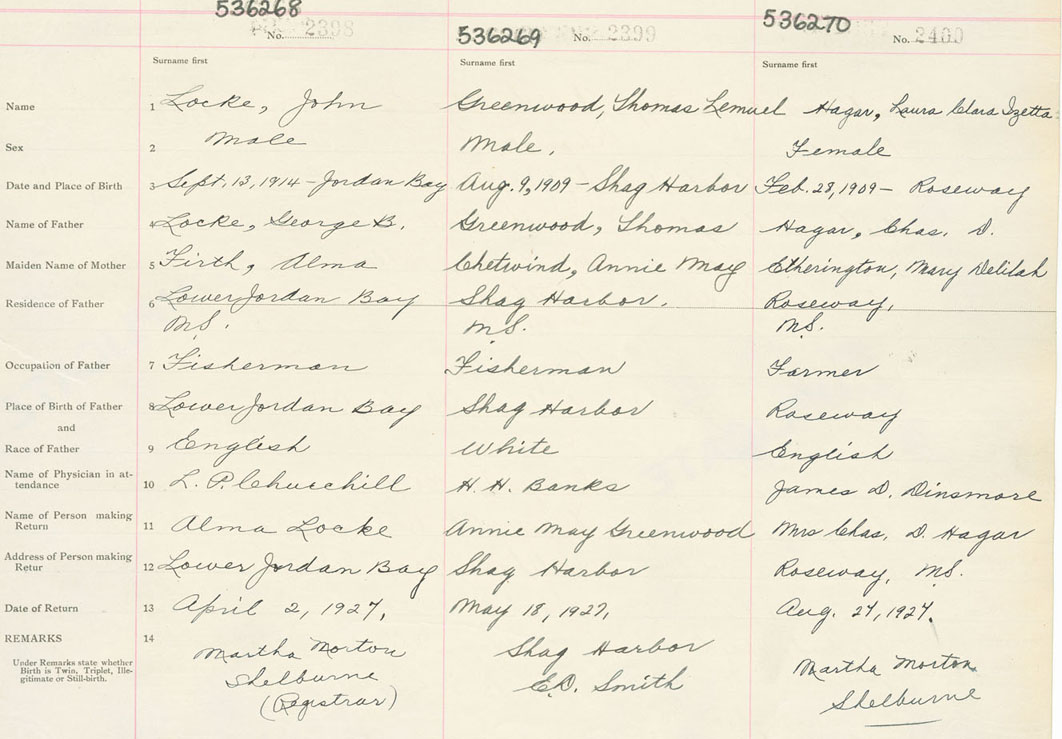 536268 536269 536270
No. 2398 No. 2399 No. 2400
Surname first Surname first Surname first
Name 1 Locke, John Greenwood, Thomas Lemuel Hagar, Laura Clara Izetta
Sex 2 Male Male, Female
Date and Place of Birth 3 Sept. 13, 1914 - Jordan Bay Aug. 9, 1909 - Shag Harbor Feb. 28, 1909 - Roseway
Name of Father 4 Locke, George B. Greenwood, Thomas Hagar, Chas. D.
Maiden Name of Mother 5 Firth, Alma Chetwind, Annie May Etherington, Mary Delilah
Residence of Father 6 Lower Jordan Bay Shag Harbor, Roseway,
N.S. N.S. N.S.
Occupation of Father 7 Fisherman Fisherman Farmer
Place of Birth of Father 8 Lower Jordan Bay Shag Harbor Roseway
and
Race of Father 9 English White English
Name of Physician in at-
tendance 10 L. P. Churchill H. H. Banks James D. Dinsmore
Name of Person making
Return 11 Alma Locke Annie May Greenwood Mrs Chas. D. Hagar
Address of Person making
Retur 12 Lower Jordan Bay Shag Harbor Roseway, N.S.
Date of Return 13 April 2, 1927, May 18, 1927, Aug. 27, 1927.
REMARKS 14
Under Remarks state whether
Birth is Twin, Triplet, Ille-
gitimate or Still-birth.
Martha Morton Shag Harbor Martha Morton
Shelburne E.D. Smith Shelburne
(Registrar)